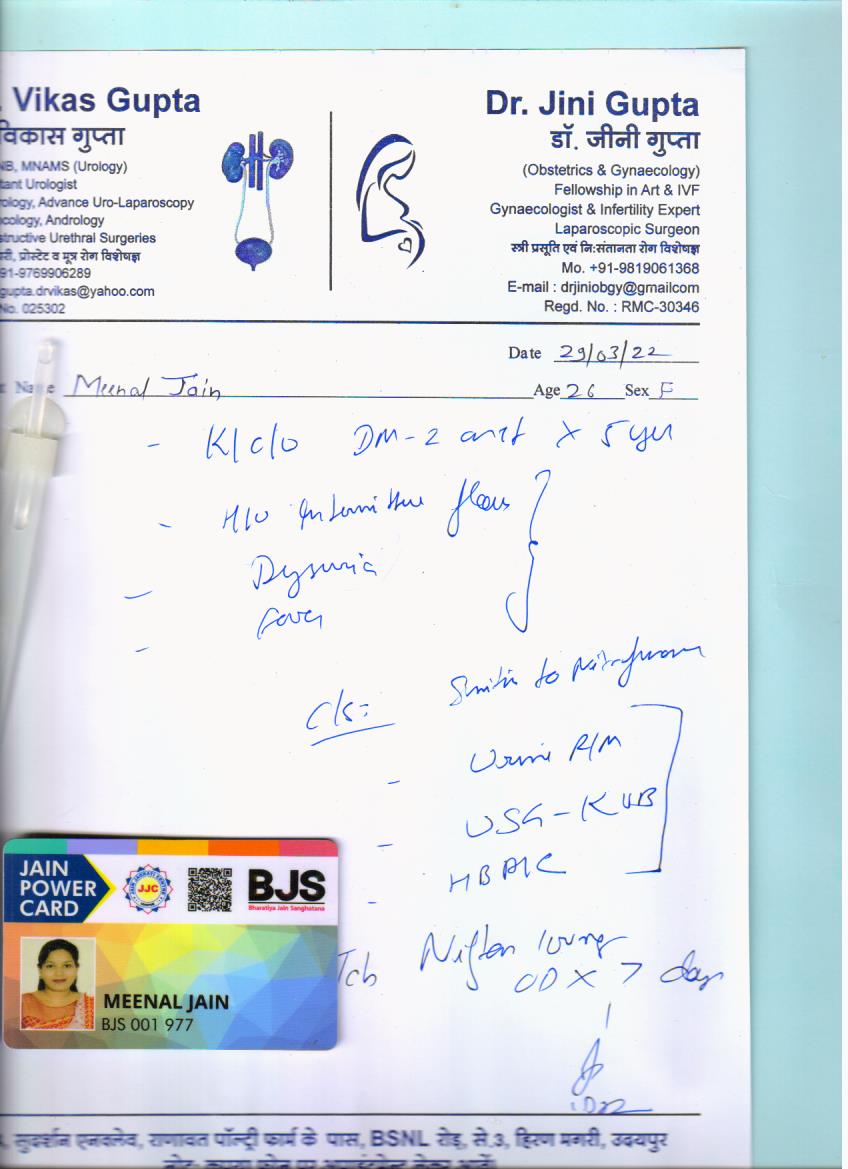 . Vikas Gupta
विकास गुप्ता
NB, MNAMS (Urology)
tant Urologist
ology, Advance Uro-Laparoscopy
cology, Andrology
structive Urethral Surgeries
री, प्रोस्टेट व मूत्र रोग विशेषज्ञ
91-9769906289
gupta.drvikas@yahoo.com
No. 025302
Dr. Jini Gupta
डॉ. जीनी गुप्ता
(Obstetrics & Gynaecology)
Fellowship in Art & IVF
Gynaecologist & Infertility Expert
Laparoscopic Surgeon
स्त्री प्रसूति एवं नि:संतानता रोग विशेषज्ञ
Mo. +91-9819061368
E-mail : drjiniobgy@gmailcom
Regd. No. : RMC-30346
Date 29/03/22
Name Meenal Jain Age 26 Sex F
- K/c/o DM-2 x 5 yrs
- H/O
- Dysuria
- Fever
C/s:- to
- Urine R/M
- USG-KUB
- HBA1C
OD X 7 days
JAIN
POWER
CARD
JJC
BJS
Bharatiya Jain Sanghatana
MEENAL JAIN
BJS 001 977
सुदर्शन एनक्लेव, राणावत पॉल्ट्री फार्म के पास, BSNL रोड़, से.3, हिरण मगरी, उदयपुर